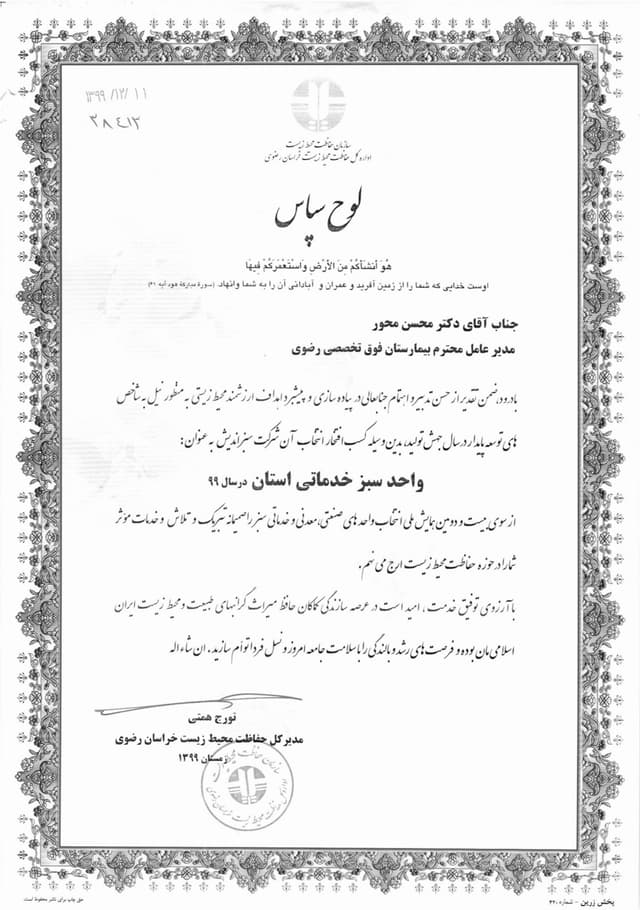 ۱۳۹۹/۱۲/۱۱
۳۸۴۱۲
سازمان حفاظت محیط زیست
اداره کل حفاظت محیط زیست خراسان رضوی
لوح سپاس
هُوَ أَنشَأَكُمْ مِنَ الْأَرْضِ وَاسْتَعْمَرَكُمْ فِيهَا
اوست خدایی که شما را از زمین آفرید و عمران و آبادانی آن را به شما وانهاد. (سوره مبارکه هود آیه ۶۱)
جناب آقای دکتر محسن محور
مدیر عامل محترم بیمارستان فوق تخصصی رضوی
با درود، ضمن تقدیر از حسن تدبیر و اهتمام جنابعالی در پیاده سازی و پیشبرد اهداف ارزشمند محیط زیستی به منظور نیل به شاخص
های توسعه پایدار در سال جهش تولید، بدین وسیله کسب افتخار انتخاب آن شرکت سبز اندیش به عنوان:
واحد سبز خدماتی استان در سال ۹۹
از سوی بیست و دومین همایش ملی انتخاب واحدهای صنعتی، معدنی و خدماتی سبز را صمیمانه تبریک و تلاش و خدمات مؤثر
شما را در حوزه حفاظت محیط زیست ارج می نهم.
با آرزوی توفیق خدمت، امید است در عرصه سازندگی کماکان حافظ میراث گرانبهای طبیعت و محیط زیست ایران
اسلامی مان بوده و فرصت های رشد و بالندگی را با سلامت جامعه امروز و نسل فردا توأم سازید. ان شاء اله
تورج همتی
مدیر کل حفاظت محیط زیست خراسان رضوی
زمستان ۱۳۹۹
پخش زرین - شماره ۴۲۰
حق چاپ برای ناشر محفوظ است